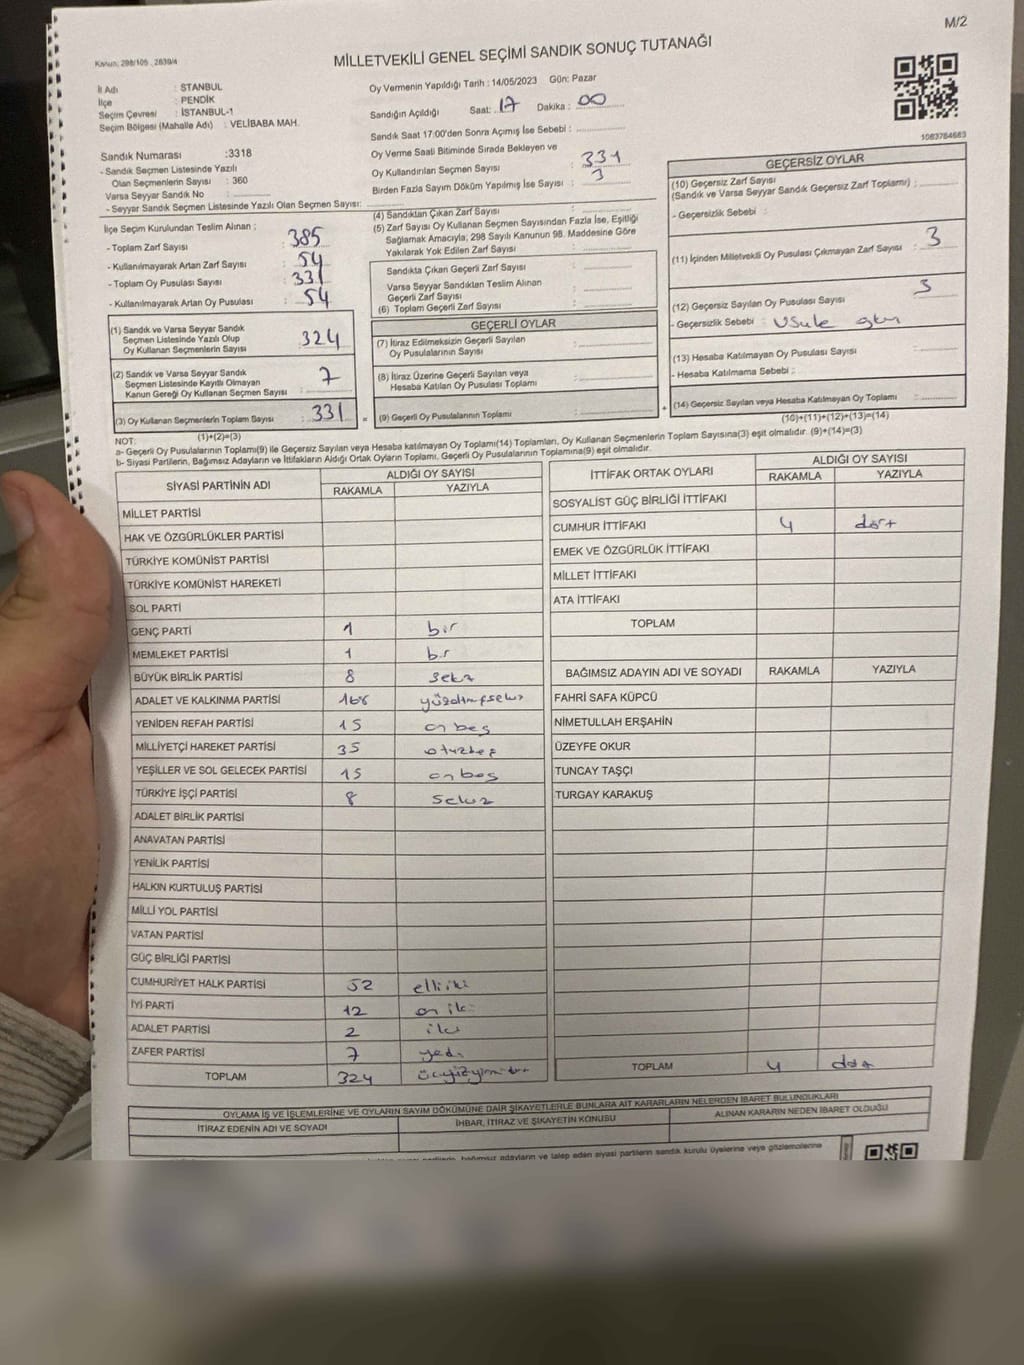 M/2
Kanun: 298/105 , 2839/4
MİLLETVEKİLİ GENEL SEÇİMİ SANDIK SONUÇ TUTANAĞI
İl Adı : STANBUL
İlçe : PENDİK
Seçim Çevresi : İSTANBUL-1
Seçim Bölgesi (Mahalle Adı) : VELİBABA MAH.
Oy Vermenin Yapıldığı Tarih : 14/05/2023 Gün: Pazar
Sandığın Açıldığı Saat: 17 Dakika : 00
Sandık Saat 17:00'den Sonra Açımış İse Sebebi :
Oy Verme Saati Bitiminde Sırada Bekleyen ve
Oy Kullandırılan Seçmen Sayısı : 331
Birden Fazla Sayım Döküm Yapılmış İse Sayısı : 3
1083784663
Sandık Numarası :3318
- Sandık Seçmen Listesinde Yazılı
Olan Seçmenlerin Sayısı : 360
Varsa Seyyar Sandık No :
- Seyyar Sandık Seçmen Listesinde Yazılı Olan Seçmen Sayısı:
İlçe Seçim Kurulundan Teslim Alınan ;
- Toplam Zarf Sayısı : 385
- Kullanılmayarak Artan Zarf Sayısı : 54
- Toplam Oy Pusulası Sayısı : 331
- Kullanılmayarak Artan Oy Pusulası : 54
(1) Sandık ve Varsa Seyyar Sandık
Seçmen Listesinde Yazılı Olup
Oy Kullanan Seçmenlerin Sayısı : 324
(2) Sandık ve Varsa Seyyar Sandık
Seçmen Listesinde Kayıtlı Olmayan
Kanun Gereği Oy Kullanan Seçmen Sayısı : 7
(3) Oy Kullanan Seçmenlerin Toplam Sayısı : 331
(1)+(2)=(3)
(4) Sandıktan Çıkan Zarf Sayısı :
(5) Zarf Sayısı Oy Kullanan Seçmen Sayısından Fazla İse, Eşitliği
Sağlamak Amacıyla, 298 Sayılı Kanunun 98. Maddesine Göre
Yakılarak Yok Edilen Zarf Sayısı :
Sandıkta Çıkan Geçerli Zarf Sayısı :
Varsa Seyyar Sandıkten Teslim Alınan
Geçerli Zarf Sayısı :
(6) Toplam Geçerli Zarf Sayısı :
GEÇERLİ OYLAR
(7) İtiraz Edilmeksizin Geçerli Sayılan
Oy Pusulalarının Sayısı :
(8) İtiraz Üzerine Geçerli Sayılan veya
Hesaba Katılan Oy Pusulası Toplamı :
= (9) Geçerli Oy Pusulalarının Toplamı :
GEÇERSİZ OYLAR
(10) Geçersiz Zarf Sayısı
(Sandık ve Varsa Seyyar Sandık Geçersiz Zarf Toplamı) :
- Geçersizlik Sebebi :
(11) İçinden Milletvekili Oy Pusulası Çıkmayan Zarf Sayısı : 3
(12) Geçersiz Sayılan Oy Pusulası Sayısı : 3
- Geçersizlik Sebebi :
(13) Hesaba Katılmayan Oy Pusulası Sayısı :
- Hesaba Katılmama Sebebi :
+ (14) Geçersiz Sayılan veya Hesaba Katılmayan Oy Toplamı :
(10)+(11)+(12)+(13)=(14)
NOT:
a- Geçerli Oy Pusulalarının Toplamı(9) ile Geçersiz Sayılan veya Hesaba katılmayan Oy Toplamı(14) Toplamları, Oy Kullanan Seçmenlerin Toplam Sayısına(3) eşit olmalıdır. (9)+(14)=(3)
b- Siyasi Partilerin, Bağımsız Adayların ve İttifakların Aldığı Ortak Oyların Toplamı, Geçerli Oy Pusulalarının Toplamına(9) eşit olmalıdır.
SİYASİ PARTİNİN ADI ALDIĞI OY SAYISI
RAKAMLA YAZIYLA
MİLLET PARTİSİ
HAK VE ÖZGÜRLÜKLER PARTİSİ
TÜRKİYE KOMÜNİST PARTİSİ
TÜRKİYE KOMÜNİST HAREKETİ
SOL PARTİ
GENÇ PARTİ 1 bir
MEMLEKET PARTİSİ 1 bir
BÜYÜK BİRLİK PARTİSİ 8 sekz
ADALET VE KALKINMA PARTİSİ 168
YENİDEN REFAH PARTİSİ 15 on beş
MİLLİYETÇİ HAREKET PARTİSİ 35 otuzbeş
YEŞİLLER VE SOL GELECEK PARTİSİ 15 on beş
TÜRKİYE İŞÇİ PARTİSİ 8 sekiz
ADALET BİRLİK PARTİSİ
ANAVATAN PARTİSİ
YENİLİK PARTİSİ
HALKIN KURTULUŞ PARTİSİ
MİLLİ YOL PARTİSİ
VATAN PARTİSİ
GÜÇ BİRLİĞİ PARTİSİ
CUMHURİYET HALK PARTİSİ 52 elliiki
İYİ PARTİ 12 on iki
ADALET PARTİSİ 2 iki
ZAFER PARTİSİ 7 yedi
TOPLAM 324
İTTİFAK ORTAK OYLARI ALDIĞI OY SAYISI
RAKAMLA YAZIYLA
SOSYALİST GÜÇ BİRLİĞİ İTTİFAKI
CUMHUR İTTİFAKI 4 dört
EMEK VE ÖZGÜRLÜK İTTİFAKI
MİLLET İTTİFAKI
ATA İTTİFAKI
TOPLAM
BAĞIMSIZ ADAYIN ADI VE SOYADI RAKAMLA YAZIYLA
FAHRİ SAFA KÜPCÜ
NİMETULLAH ERŞAHİN
ÜZEYFE OKUR
TUNCAY TAŞÇI
TURGAY KARAKUŞ
TOPLAM 4 dört
OYLAMA İŞ VE İŞLEMLERİNE VE OYLARIN SAYIM DÖKÜMÜNE DAİR ŞİKAYETLERLE BUNLARA AİT KARARLARIN NELERDEN İBARET BULUNDUKLARI
İTİRAZ EDENİN ADI VE SOYADI İHBAR, İTİRAZ VE ŞİKAYETİN KONUSU ALINAN KARARIN NEDEN İBARET OLDUĞU
bağımsız adayların ve talep eden siyasi partilerin sandık kurulu üyelerine veya gözlemcilerine